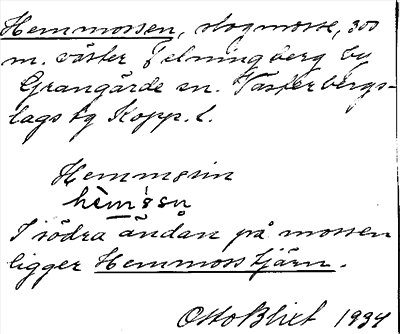 Hemmossen, slogmosse, 300
m. väster Felningberg by
Grangärde sn. Västerbergs-
lags tg Kopp. l.
Hemmosin
hèm̀ǝsn
I södra ändan på mossen
ligger Hemmosstjärn.
Otto Blixt 1934